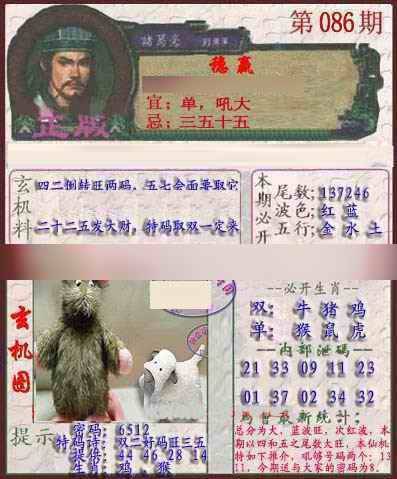 第086期
諸葛亮
稳赢
宜:单,吼大
忌:三五十五
正版
玄机料
四二倒赫旺两码,五七会面要取它
二十二五发大财,特码取双一定来
本期必开
尾数:137246
波色:红 蓝
五行:金 水 土
玄机图
必开生肖
双: 牛 猪 鸡
单: 猴 鼠 虎
内部泄码
21 33 09 11 23
01 37 02 34 32
最新统计:
总分为大,蓝波旺,次红波,本
期以四和五之尾数大旺,本仙机
特如下推介,吼够号码两个:13
11,今期送与大家的密码为8.
提示
密码: 6512
特码诗: 双二好码旺三五
提供: 44 46 28 14
生肖: 鸡,猴